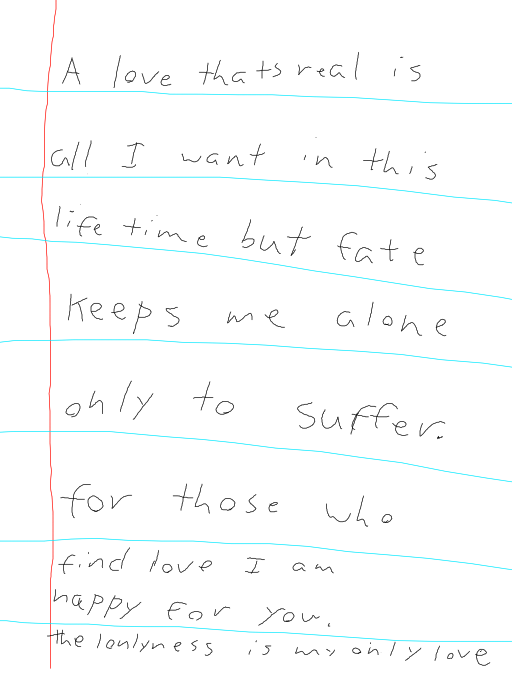 A love thats real is
all I want in this
life time but fate
keeps me alone
only to suffer.
for those who
find love I am
happy for you.
the lonlyness is my only love